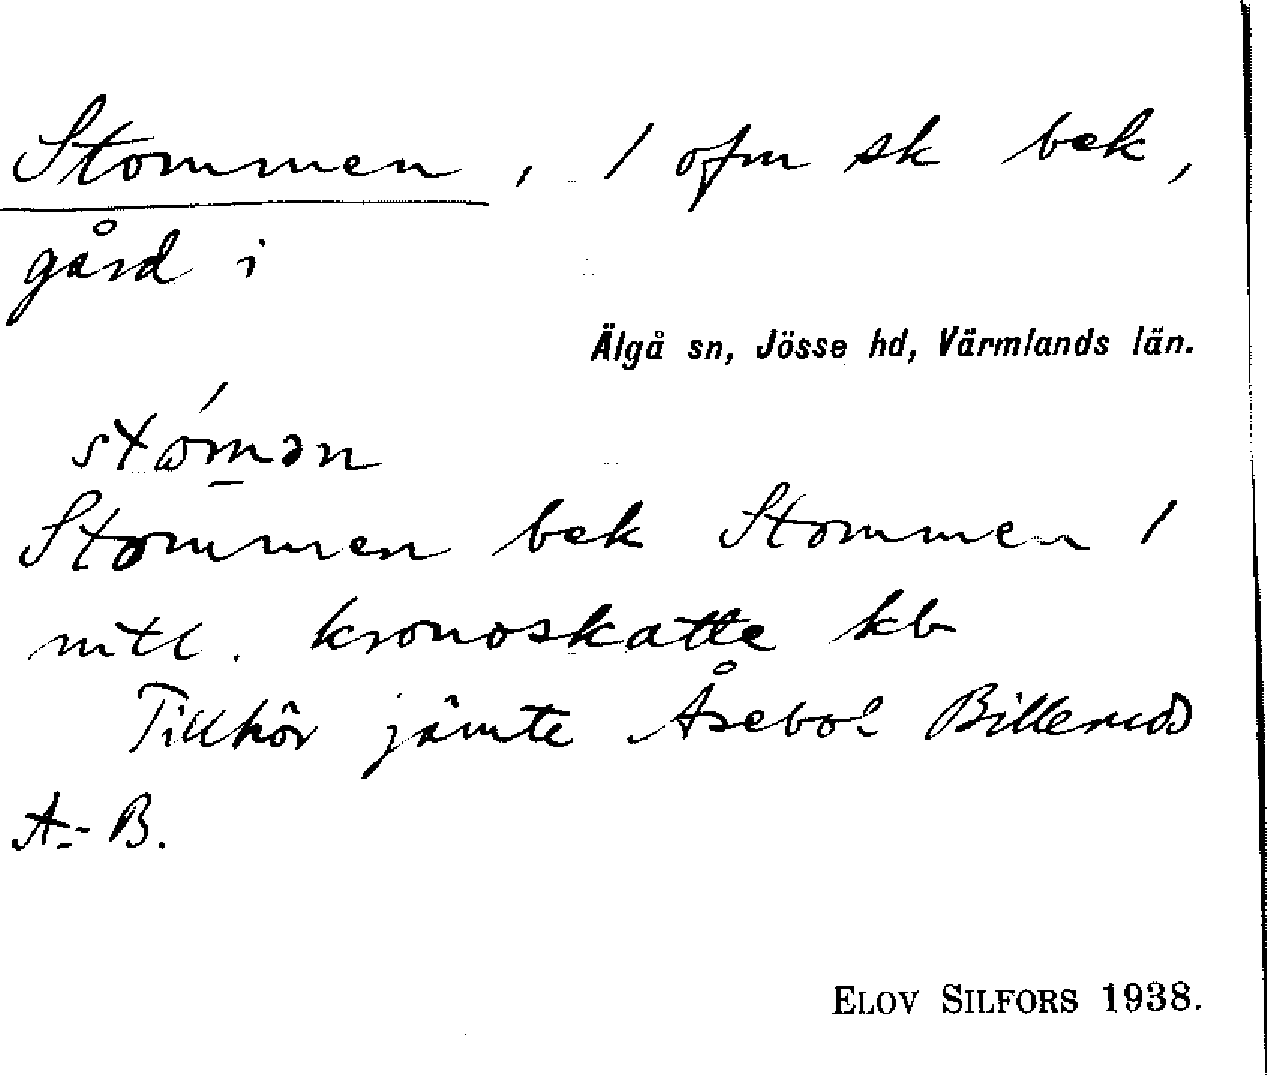 Stommen, 1 ofm sk bek,
gård i
Älgå sn, Jösse hd, Värmlands län.
stómən
Stommen bek Stommen 1
mtl. kronoskatte kb
Tillhör jämte Åsebol Billeruds
A.-B.
ELOV SILFORS 1938.